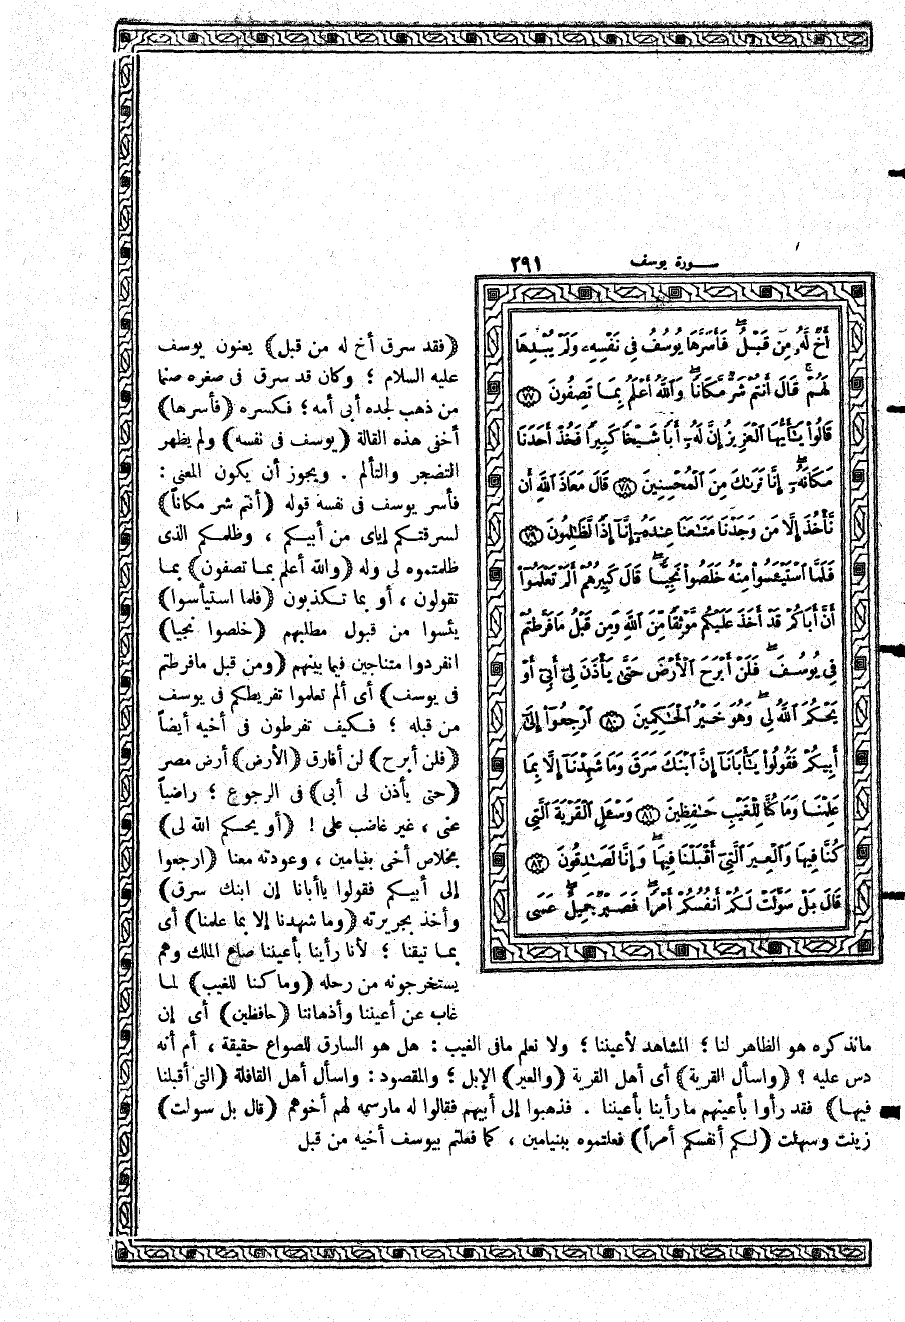 سورة يوسف ٢٩١
أَخٌ لَّهُۥ مِن قَبْلُ ۚ فَأَسَرَّهَا يُوسُفُ فِى نَفْسِهِۦ وَلَمْ يُبْدِهَا
لَهُمْ ۚ قَالَ أَنتُمْ شَرٌّ مَّكَانًا ۖ وَٱللَّهُ أَعْلَمُ بِمَا تَصِفُونَ ﴿٧٧﴾
قَالُوا۟ يَـٰٓأَيُّهَا ٱلْعَزِيزُ إِنَّ لَهُۥٓ أَبًا شَيْخًا كَبِيرًا فَخُذْ أَحَدَنَا
مَكَانَهُۥٓ ۖ إِنَّا نَرَىٰكَ مِنَ ٱلْمُحْسِنِينَ ﴿٧٨﴾ قَالَ مَعَاذَ ٱللَّهِ أَن
نَّأْخُذَ إِلَّا مَن وَجَدْنَا مَتَـٰعَنَا عِندَهُۥٓ إِنَّآ إِذًا لَّظَـٰلِمُونَ ﴿٧٩﴾
فَلَمَّا ٱسْتَيْـَٔسُوا۟ مِنْهُ خَلَصُوا۟ نَجِيًّا ۖ قَالَ كَبِيرُهُمْ أَلَمْ تَعْلَمُوٓا۟
أَنَّ أَبَاكُمْ قَدْ أَخَذَ عَلَيْكُم مَّوْثِقًا مِّنَ ٱللَّهِ وَمِن قَبْلُ مَا فَرَّطتُمْ
فِى يُوسُفَ ۖ فَلَنْ أَبْرَحَ ٱلْأَرْضَ حَتَّىٰ يَأْذَنَ لِىٓ أَبِىٓ أَوْ
يَحْكُمَ ٱللَّهُ لِى ۖ وَهُوَ خَيْرُ ٱلْحَـٰكِمِينَ ﴿٨٠﴾ ٱرْجِعُوٓا۟ إِلَىٰٓ
أَبِيكُمْ فَقُولُوا۟ يَـٰٓأَبَانَآ إِنَّ ٱبْنَكَ سَرَقَ وَمَا شَهِدْنَآ إِلَّا بِمَا
عَلِمْنَا وَمَا كُنَّا لِلْغَيْبِ حَـٰفِظِينَ ﴿٨١﴾ وَسْـَٔلِ ٱلْقَرْيَةَ ٱلَّتِى
كُنَّا فِيهَا وَٱلْعِيرَ ٱلَّتِىٓ أَقْبَلْنَا فِيهَا ۖ وَإِنَّا لَصَـٰدِقُونَ ﴿٨٢﴾
قَالَ بَلْ سَوَّلَتْ لَكُمْ أَنفُسُكُمْ أَمْرًا ۖ فَصَبْرٌ جَمِيلٌ ۖ عَسَى
(فقد سرق أخ له من قبل) يعنون يوسف
عليه السلام ؛ وكان قد سرق فى صغره صنما
من ذهب لجده أبى أمه ؛ فكسره (فأسرها)
أخفى هذه القالة (يوسف فى نفسه) ولم يظهر
التضجر والتألم . ويجوز أن يكون المعنى :
فأسر يوسف فى نفسه قوله (أنتم شر مكاناً)
لسرقتكم إياى من أبيكم ، وظلمكم الذى
ظلمتموه لى وله (والله أعلم بما تصفون) بما
تقولون ، أو بما تكذبون (فلما استيأسوا)
يئسوا من قبول مطلبهم (خلصوا نجيا)
انفردوا متناجين فيما بينهم (ومن قبل مافرطتم
فى يوسف) أى ألم تعلموا تفريطكم فى يوسف
من قبله ؛ فكيف تفرطون فى أخيه أيضاً
(فلن أبرح) لن أفارق (الأرض) أرض مصر
(حتى يأذن لى أبى) فى الرجوع ؛ راضياً
عنى ، غير غاضب على ! (أو يحكم الله لى)
بخلاص أخى بنيامين ، وعودته معنا (ارجعوا
إلى أبيكم فقولوا ياأبانا إن ابنك سرق)
وأخذ بجريرته (وما شهدنا إلا بما علمنا) أى
بما تيقنا ؛ لأنا رأينا بأعيننا صاع الملك وهم
يستخرجونه من رحله (وما كنا للغيب) لما
غاب عن أعيننا وأذهاننا (حافظين) أى إن
مانذكره هو الظاهر لنا ؛ المشاهد لأعيننا ؛ ولا نعلم مافى الغيب : هل هو السارق للصواع حقيقة ، أم أنه
دس عليه ؟ (واسأل القرية) أى أهل القرية (والعير) الإبل ؛ والمقصود : واسأل أهل القافلة (التى أقبلنا
فيها) فقد رأوا بأعينهم مارأينا بأعيننا . فذهبوا إلى أبيهم فقالوا له مارسمه لهم أخوهم (قال بل سولت)
زينت وسهلت (لكم أنفسكم أمراً) فعلتموه ببنيامين ، كما فعلتم بيوسف أخيه من قبل